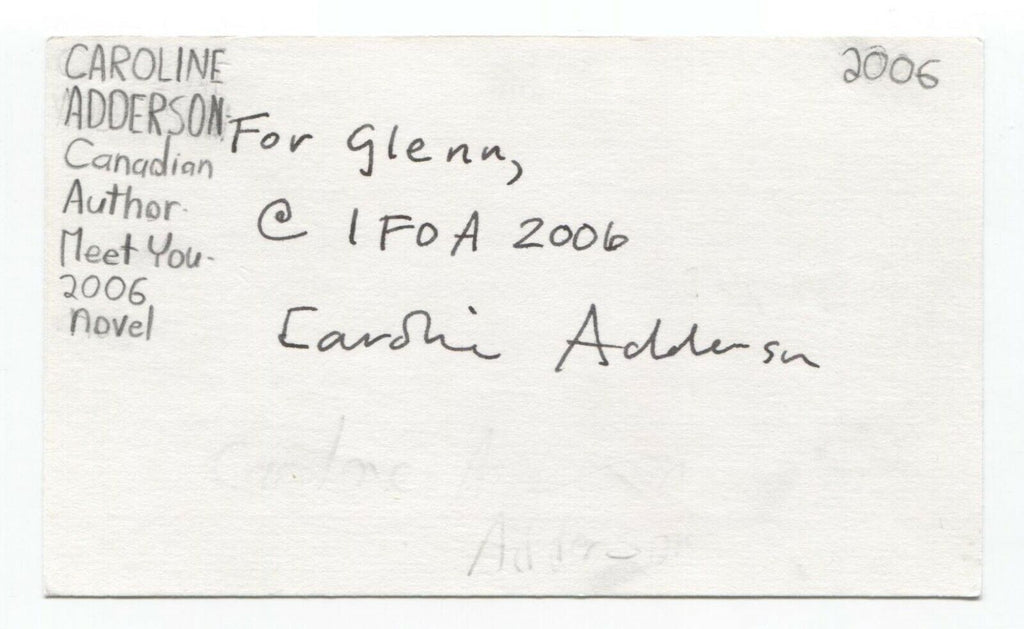 CAROLINE
ADDERSON
Canadian
Author.
Meet You-
2006
novel
2006
For Glenn,
@ IFOA 2006
Caroline Adderson
Adderson